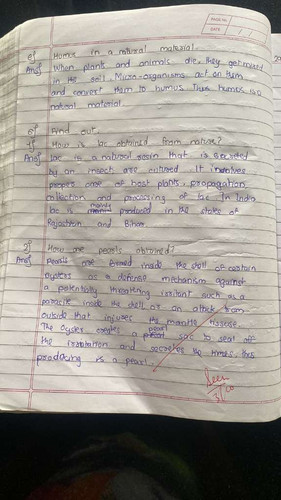 PAGE No.
DATE
Q) Humus in a natural material.
Ans) When plants and animals die, they get mixed
in the soil. Micro-organisms act on them
and convert them to humus. Thus humus is a
natural material.
Q) Find out.
1) How is lac obtained from nature?
Ans) lac is a natural resin that is secreted
by an insect are cultured. It involves
proper care of host plants, propagation
collection and processing of lac. In India
lac is mainly produced in the state of
Rajasthan and Bihar.
2) How are pearls obtained?
Ans) Pearls are formed inside the shell of certain
oysters as a defense mechanism against
a potentially threatening irritant such as a
parasite inside the shell or an attack from
outside that injures the mantle tissue.
The Oyster creates a pearl sac to seal off
the irritation and secretes the this
producing is a pearl.
Seen